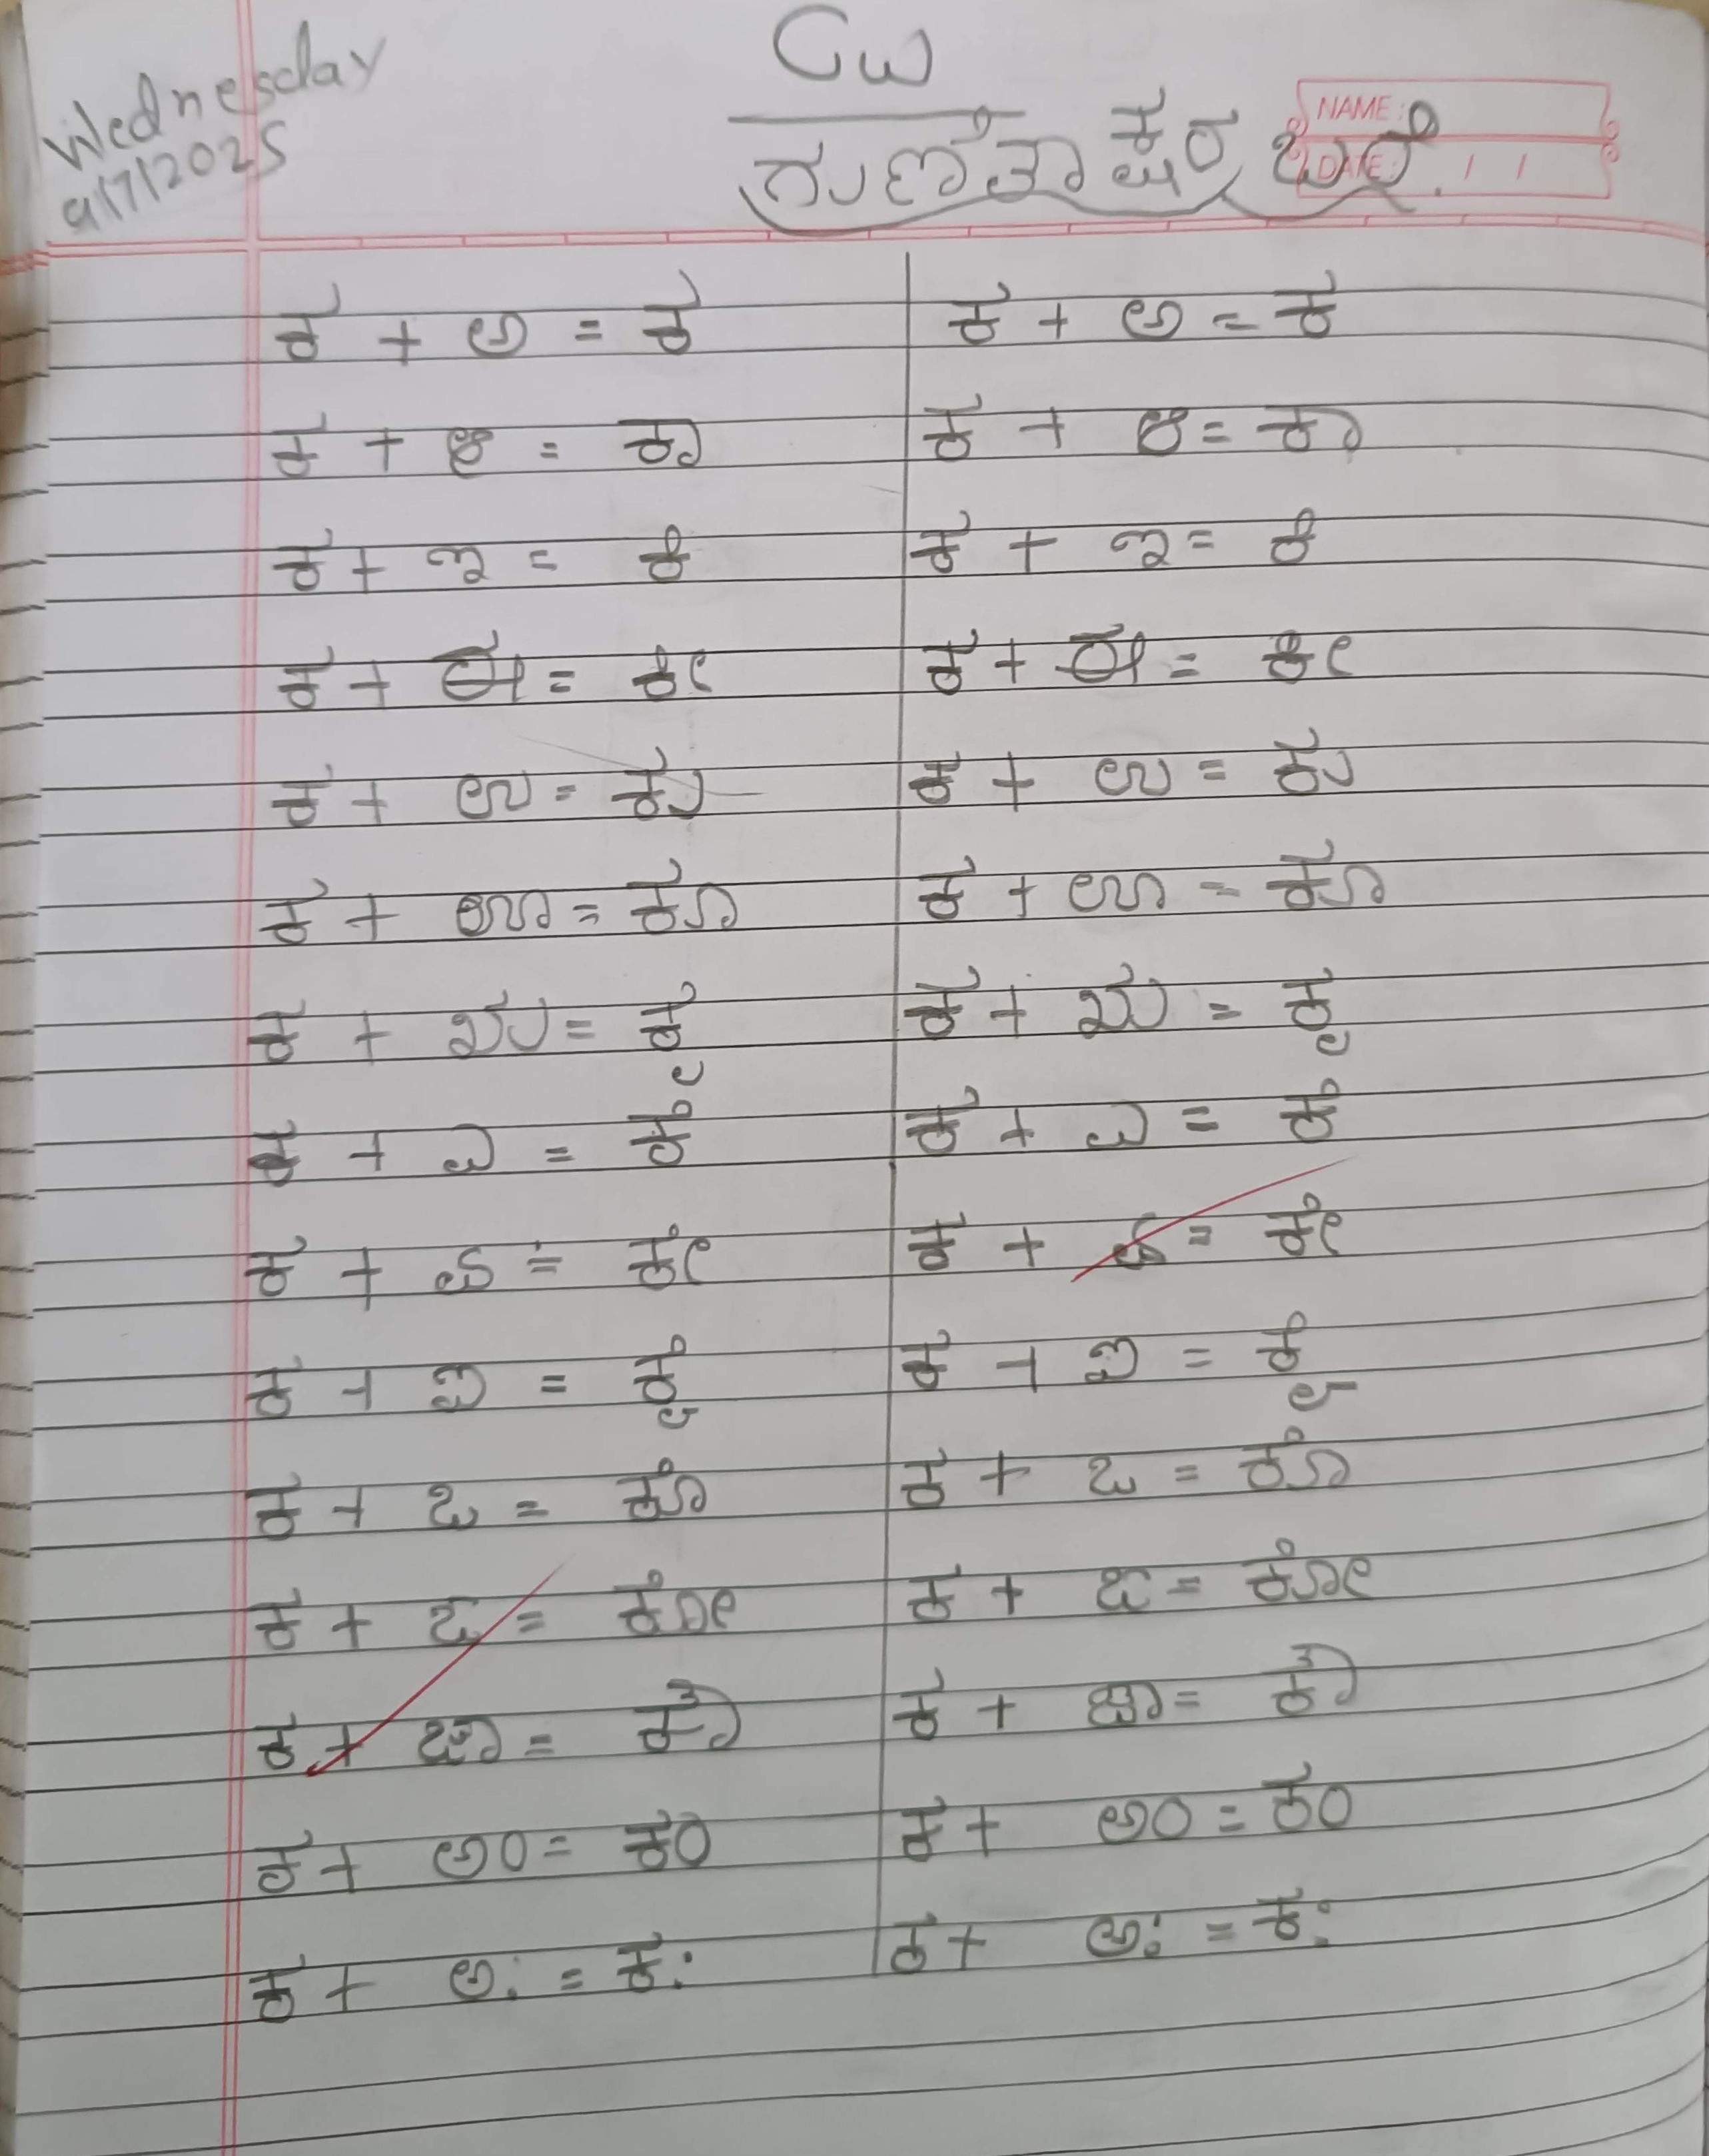 Wednesday
9/7/2025
CW
NAME:
DATE: / /
ಗುಣಿತಾಕ್ಷರ ಬರೆ.
ಕ + ಅ = ಕ
ಕ + ಆ = ಕಾ
ಕ + ಇ = ಕಿ
ಕ + ಈ = ಕೀ
ಕ + ಉ = ಕು
ಕ + ಊ = ಕೂ
ಕ + ಋ = ಕೃ
ಕ + ಎ = ಕೆ
ಕ + ಏ = ಕೇ
ಕ + ಐ = ಕೈ
ಕ + ಒ = ಕೊ
ಕ + ಓ = ಕೋ
ಕ + ಔ = ಕೌ
ಕ + ಅಂ = ಕಂ
ಕ + ಅಃ = ಕಃ
ಕ + ಅ = ಕ
ಕ + ಆ = ಕಾ
ಕ + ಇ = ಕಿ
ಕ + ಈ = ಕೀ
ಕ + ಉ = ಕು
ಕ + ಊ = ಕೂ
ಕ + ಋ = ಕೃ
ಕ + ಎ = ಕೆ
ಕ + ಏ = ಕೇ
ಕ + ಐ = ಕೈ
ಕ + ಒ = ಕೊ
ಕ + ಓ = ಕೋ
ಕ + ಔ = ಕೌ
ಕ + ಅಂ = ಕಂ
ಕ + ಅಃ = ಕಃ